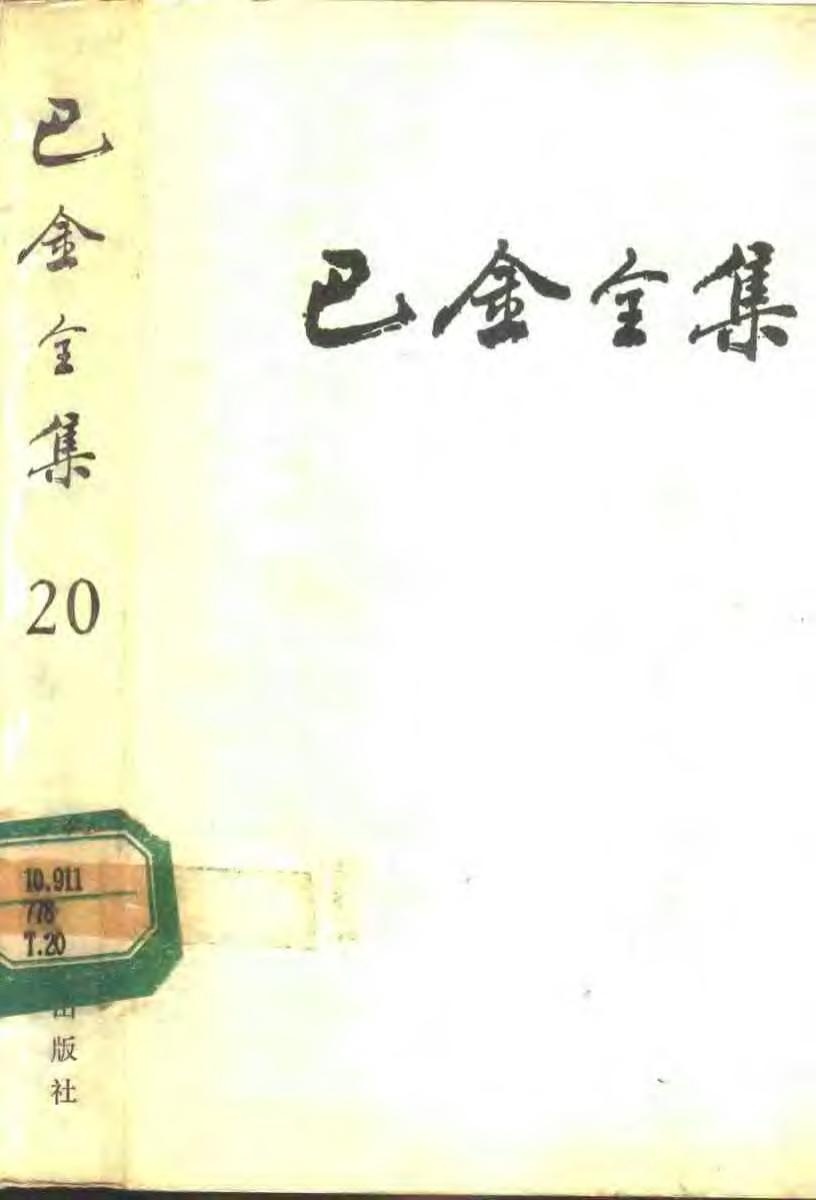 巴金全集
20
10.911
778
T.20
出版社
巴金全集